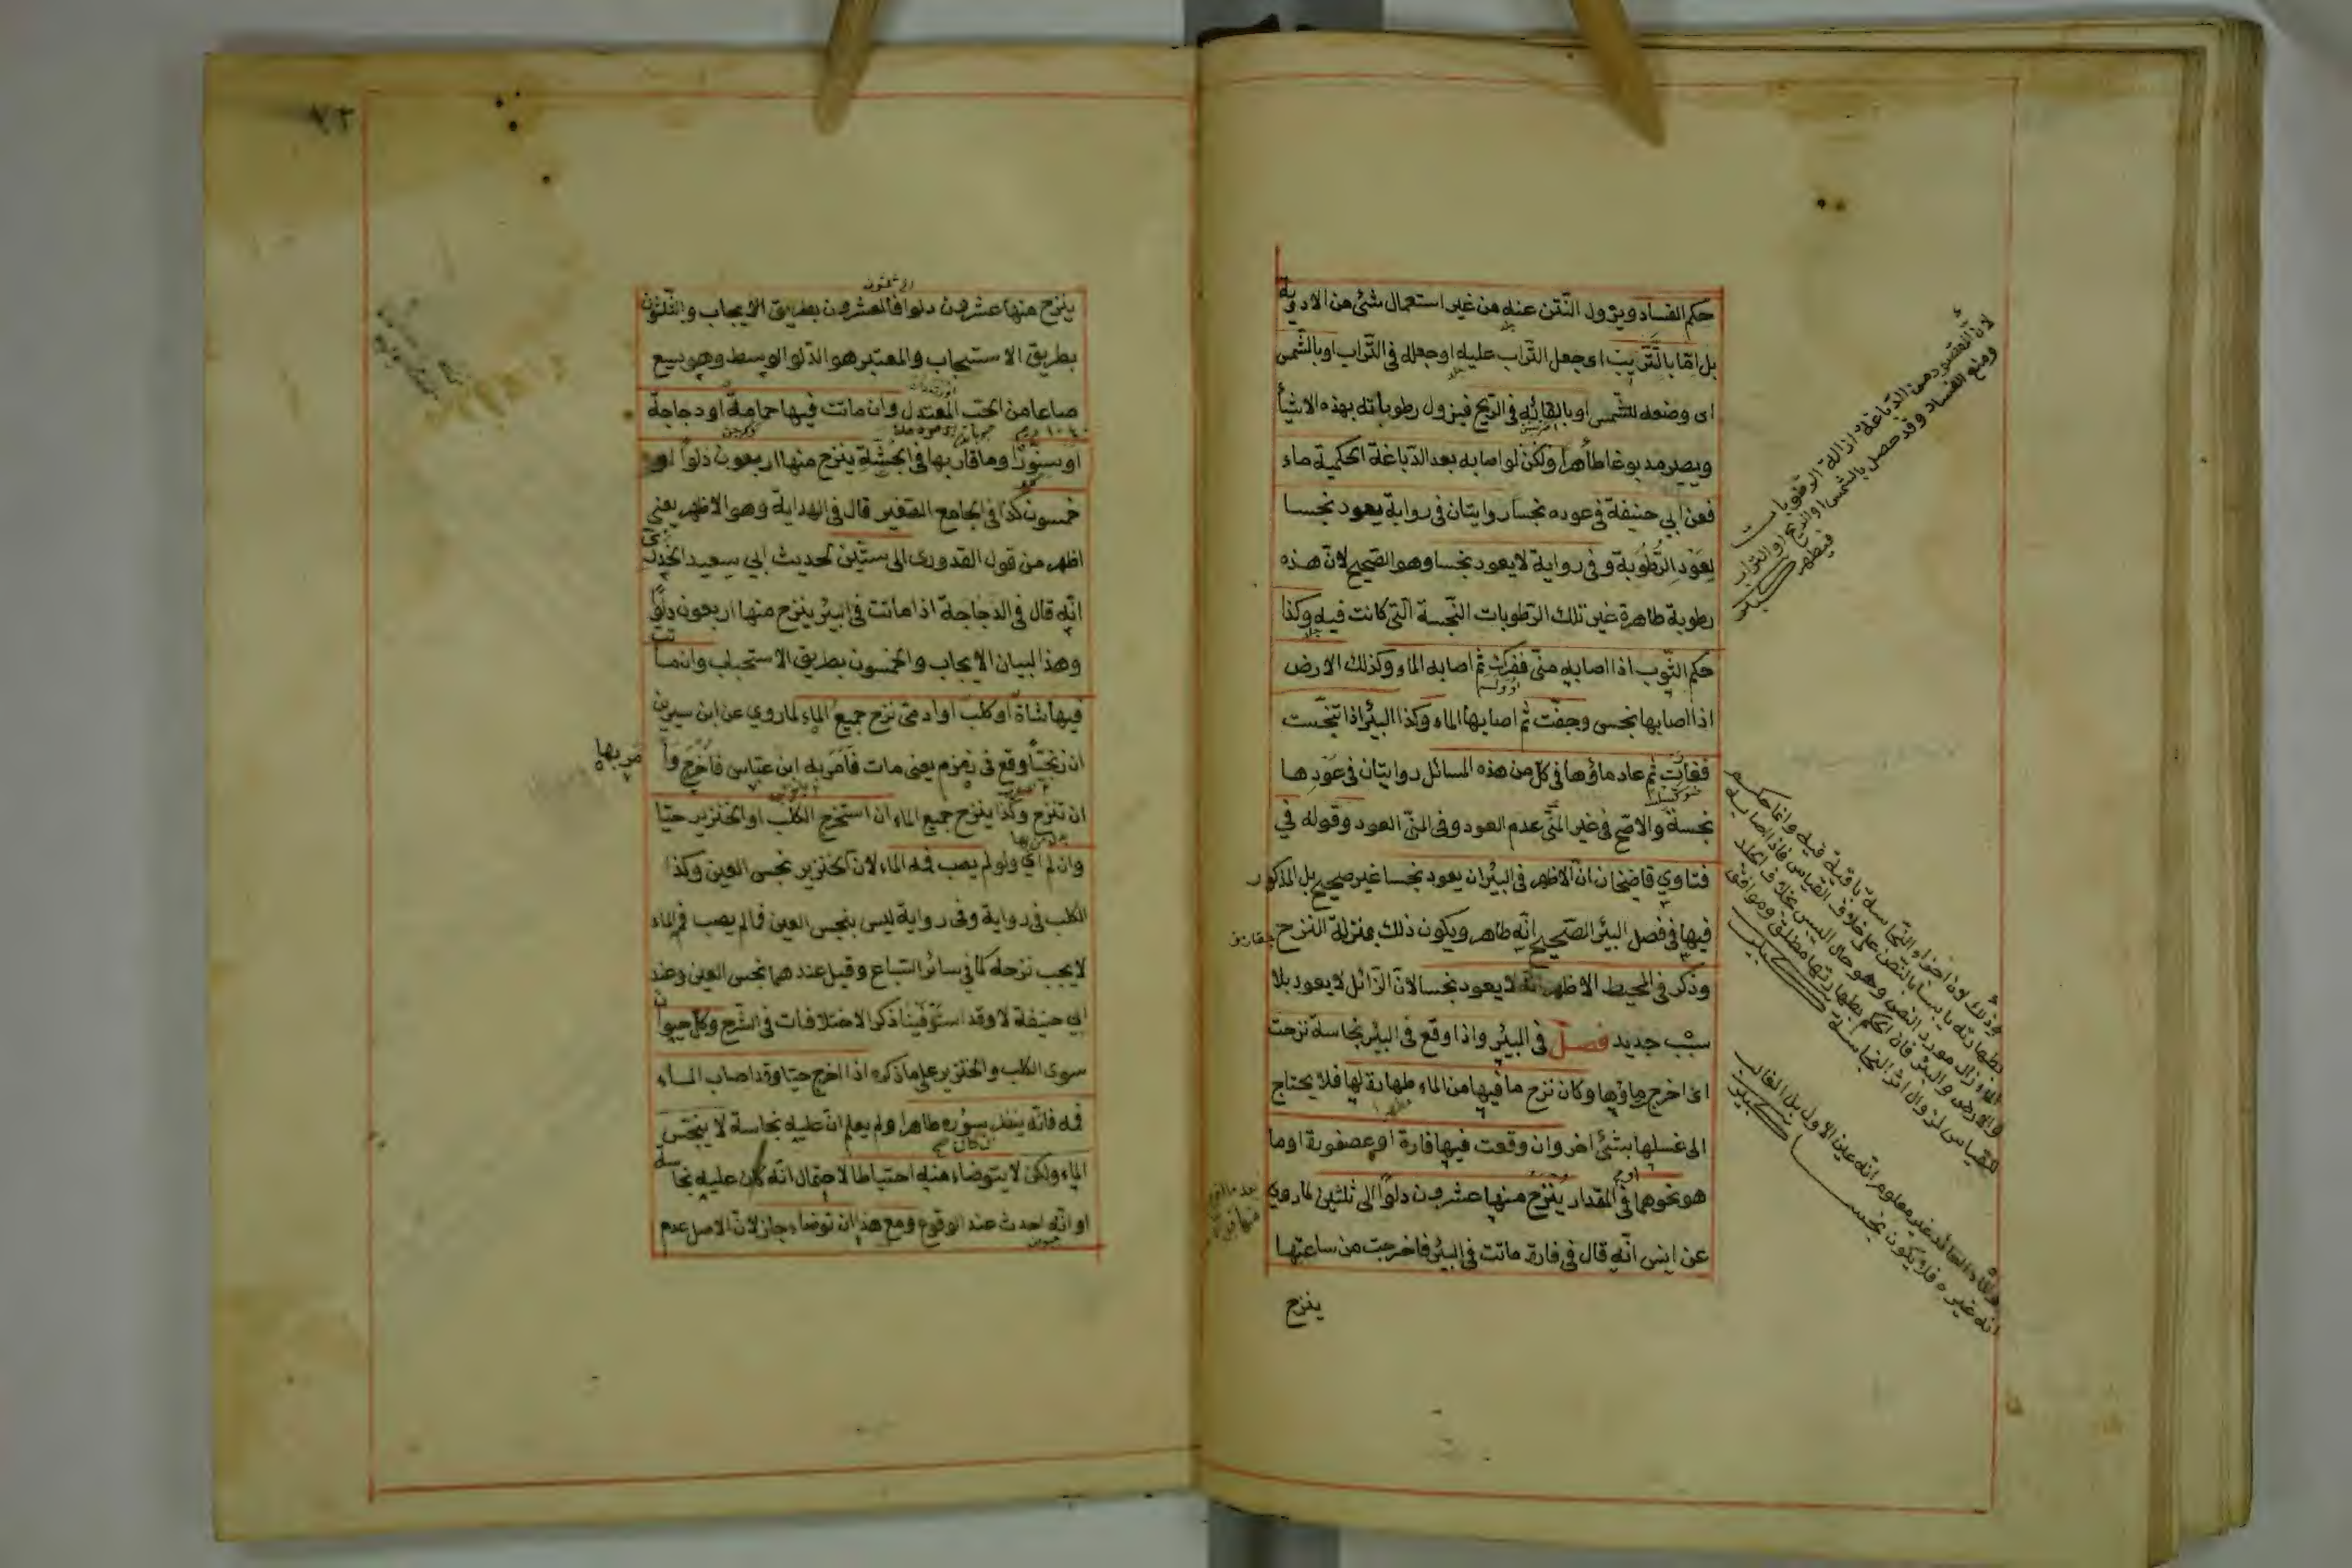 حكم الفساد ويزول النتن عنه من غير استعمال شئ من الادوية
بل امّا بالتّتريب اى جعل التّراب عليه او جعله فى التّراب او بالشّمس
اى وضعه للشّمس او بالقائه فى الرّيح فيزول رطوباته بهذه الاشيأ
ويصير مدبوغا طاهرا ولكن لو اصابه بعد الدّباغة الحكمية ماء
فعن ابي حنيفة فى عوده نجسا روايتان فى رواية يعود نجسا
لِعَوْدِ الرّطوبة وفى رواية لا يعود نجسا وهو الصّحيح لانّ هذه
رطوبة طاهرة غير تلك الرّطوبات النّجسة الّتى كانت فيه وكذا
حكم الثّوب اذا اصابه منىّ ففرك ثمّ اصابه الماء وكذلك الارض
اذا اصابها نجس وجفّت ثم اصابها الماء وكذا البئر اذا تنجّست
فغارت ثم عاد ماؤها فى كلّ من هذه المسائل روايتان فى عَوْدِها
نجسة والاصحّ فى غير المنىّ عدم العود وفى المنىّ العود وقوله في
فتاوي قاضيخان انّ الاظهر فى البئر ان يعود نجسا غير صحيح بل المذكور
فيها فى فصل البئر الصّحيح انّه طاهر ويكون ذلك بمنزلة النّزح
وذكر فى المحيط الاظهر انّه لا يعود نجسا لانّ الزّائل لا يعود بلا
سبب جديد فصل فى البئر واذا وقع فى البئر نجاسة نزحت
اى اخرج ماؤها وكان نزح ما فيها من الماء طهارة لها فلا يحتاج
الى غسلها بشئ اخر وان وقعت فيها فارة او عصفورة او ما
هو نحوهما فى المقدار ينزح منها عشرون دلوا الى ثلثين لما روي
عن انس انّه قال فى فارة ماتت فى البئر فاخرجت من ساعتها
ينزح
لانّ المقصود من الدّباغة ازالة الرّطوبات
ومنع الفساد وقد حصل بالشّمس او الرّيح او التّراب
فيطهر
كبير
وذلك لانّ اجزاء النّجاسة باقية فيه وانّما حكم
بطهارته يابسا بالنّص على خلاف القياس فاذا اصابه
الماء زال مورد النّص وهو حال اليبس بخلاف الجلد
والارض والبئر فانّ الحكم بطهارتها مطلق وموافق
للقياس لزوال اثر النّجاسة كبير
العائد غير معلوم انّه عين الاول بل الغالب
انه غيره فلا يكون نجسا كبير
٧٢
ينزح منها عشرون دلوا فالعشرون بطريق الايجاب والثّلثون
بطريق الاستحباب والمعتبر هو الدّلو الوسط وهو يسع
صاعا من الحبّ المعتدل وان ماتت فيها حمامة او دجاجة
او سنّور وما قاربها فى الجثّة ينزح منها اربعون دلوا او
خمسون كذا فى الجامع الصّغير قال فى الهداية وهو الاظهر يعنى
اظهر من قول القدورى الى ستّين لحديث ابي سعيد الخدرى
انّه قال فى الدجاجة اذا ماتت فى البئر ينزح منها اربعون دلوا
وهذا لبيان الايجاب والخمسون بطريق الاستحباب وان ماتت
فيها شاة او كلب او ادمىّ نزح جميع الماء لما روي عن ابن سيرين
ان زنجيّا وقع فى زمزم يعنى مات فامر به ابن عبّاس فاخرج وامر بها
ان تنزح وكذا ينزح جميع الماء ان استخرج الكلب او الخنزير حيّا
وان لم اي ولو لم يصب فمه الماء لانّ الخنزير نجس العين وكذا
الكلب فى رواية وفى رواية ليس بنجس العين فما لم يصب فمه الماء
لا يجب نزحه كما فى سائر السّباع وقيل عندهما نجس العين وعند
ابي حنيفة لا وقد استوفينا ذكر الاختلافات فى الشّرح وكلّ حيوان
سوى الكلب والخنزير على ما ذكره اذا اخرج حيّا وقد اصاب الماء
فمه فانّه ينظر ان كان سؤره طاهرا ولم يعلم انّ عليه نجاسة لا ينجّس
الماء ولكن لا يتوضاء منه احتياطا لاحتمال انّه كان عليه نجاسة
او انّه احدث عند الوقوع ومع هذا ان توضاء جاز لانّ الاصل عدم